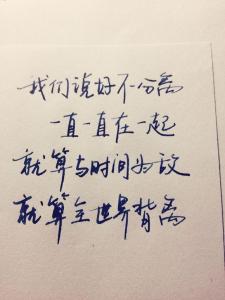 我们说好不分离
一直一直在一起
就算与时间为敌
就算全世界背离